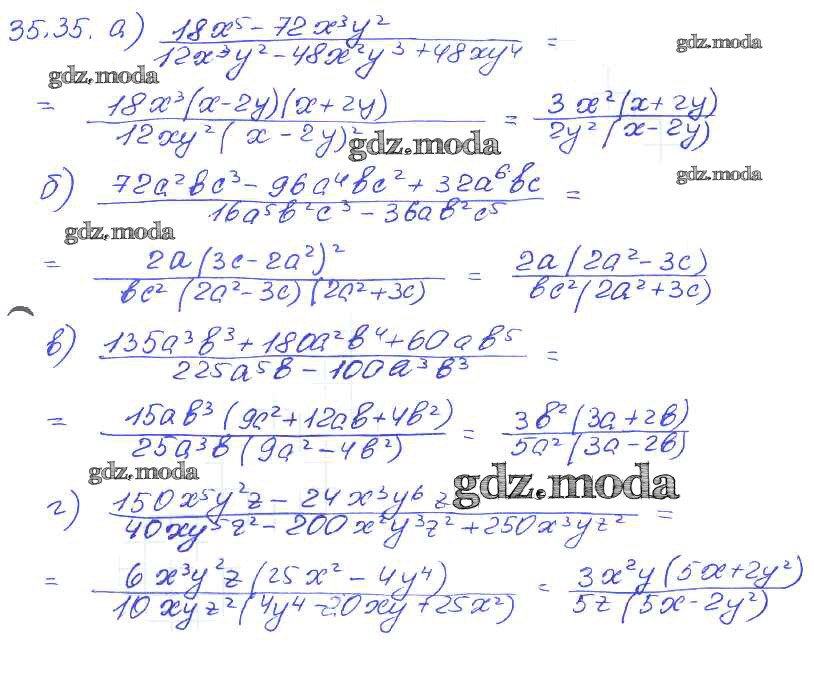 35.35. а) (18x⁵ - 72x³y²)/(12x³y² - 48x²y³ + 48xy⁴) =
gdz.moda
gdz.moda
= 18x³(x-2y)(x+2y)/12xy²(x-2y)² = 3x²(x+2y)/2y²(x-2y)
gdz.moda
б) (72a²bc³ - 96a⁴bc² + 32a⁶bc)/(16a⁵b²c³ - 36ab²c⁵) =
gdz.moda
gdz.moda
= 2a(3c-2a²)²/bc²(2a²-3c)(2a²+3c) = 2a(2a²-3c)/bc²(2a²+3c)
в) (135a³b³ + 180a²b⁴ + 60ab⁵)/(225a⁵b - 100a³b³) =
= 15ab³(9a²+12ab+4b²)/25a³b(9a²-4b²) = 3b²(3a+2b)/5a²(3a-2b)
gdz.moda
gdz.moda
г) (150x⁵y²z - 24x³y⁶z)/(40xy⁵z² - 200x²y³z² + 250x³yz²) =
= 6x³y²z(25x²-4y⁴)/10xyz²(4y⁴-20xy+25x²) = 3x²y(5x+2y²)/5z(5x-2y²)